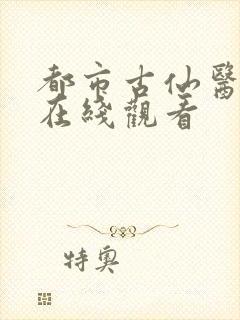 都市古仙醫
在綫觀看
特奧